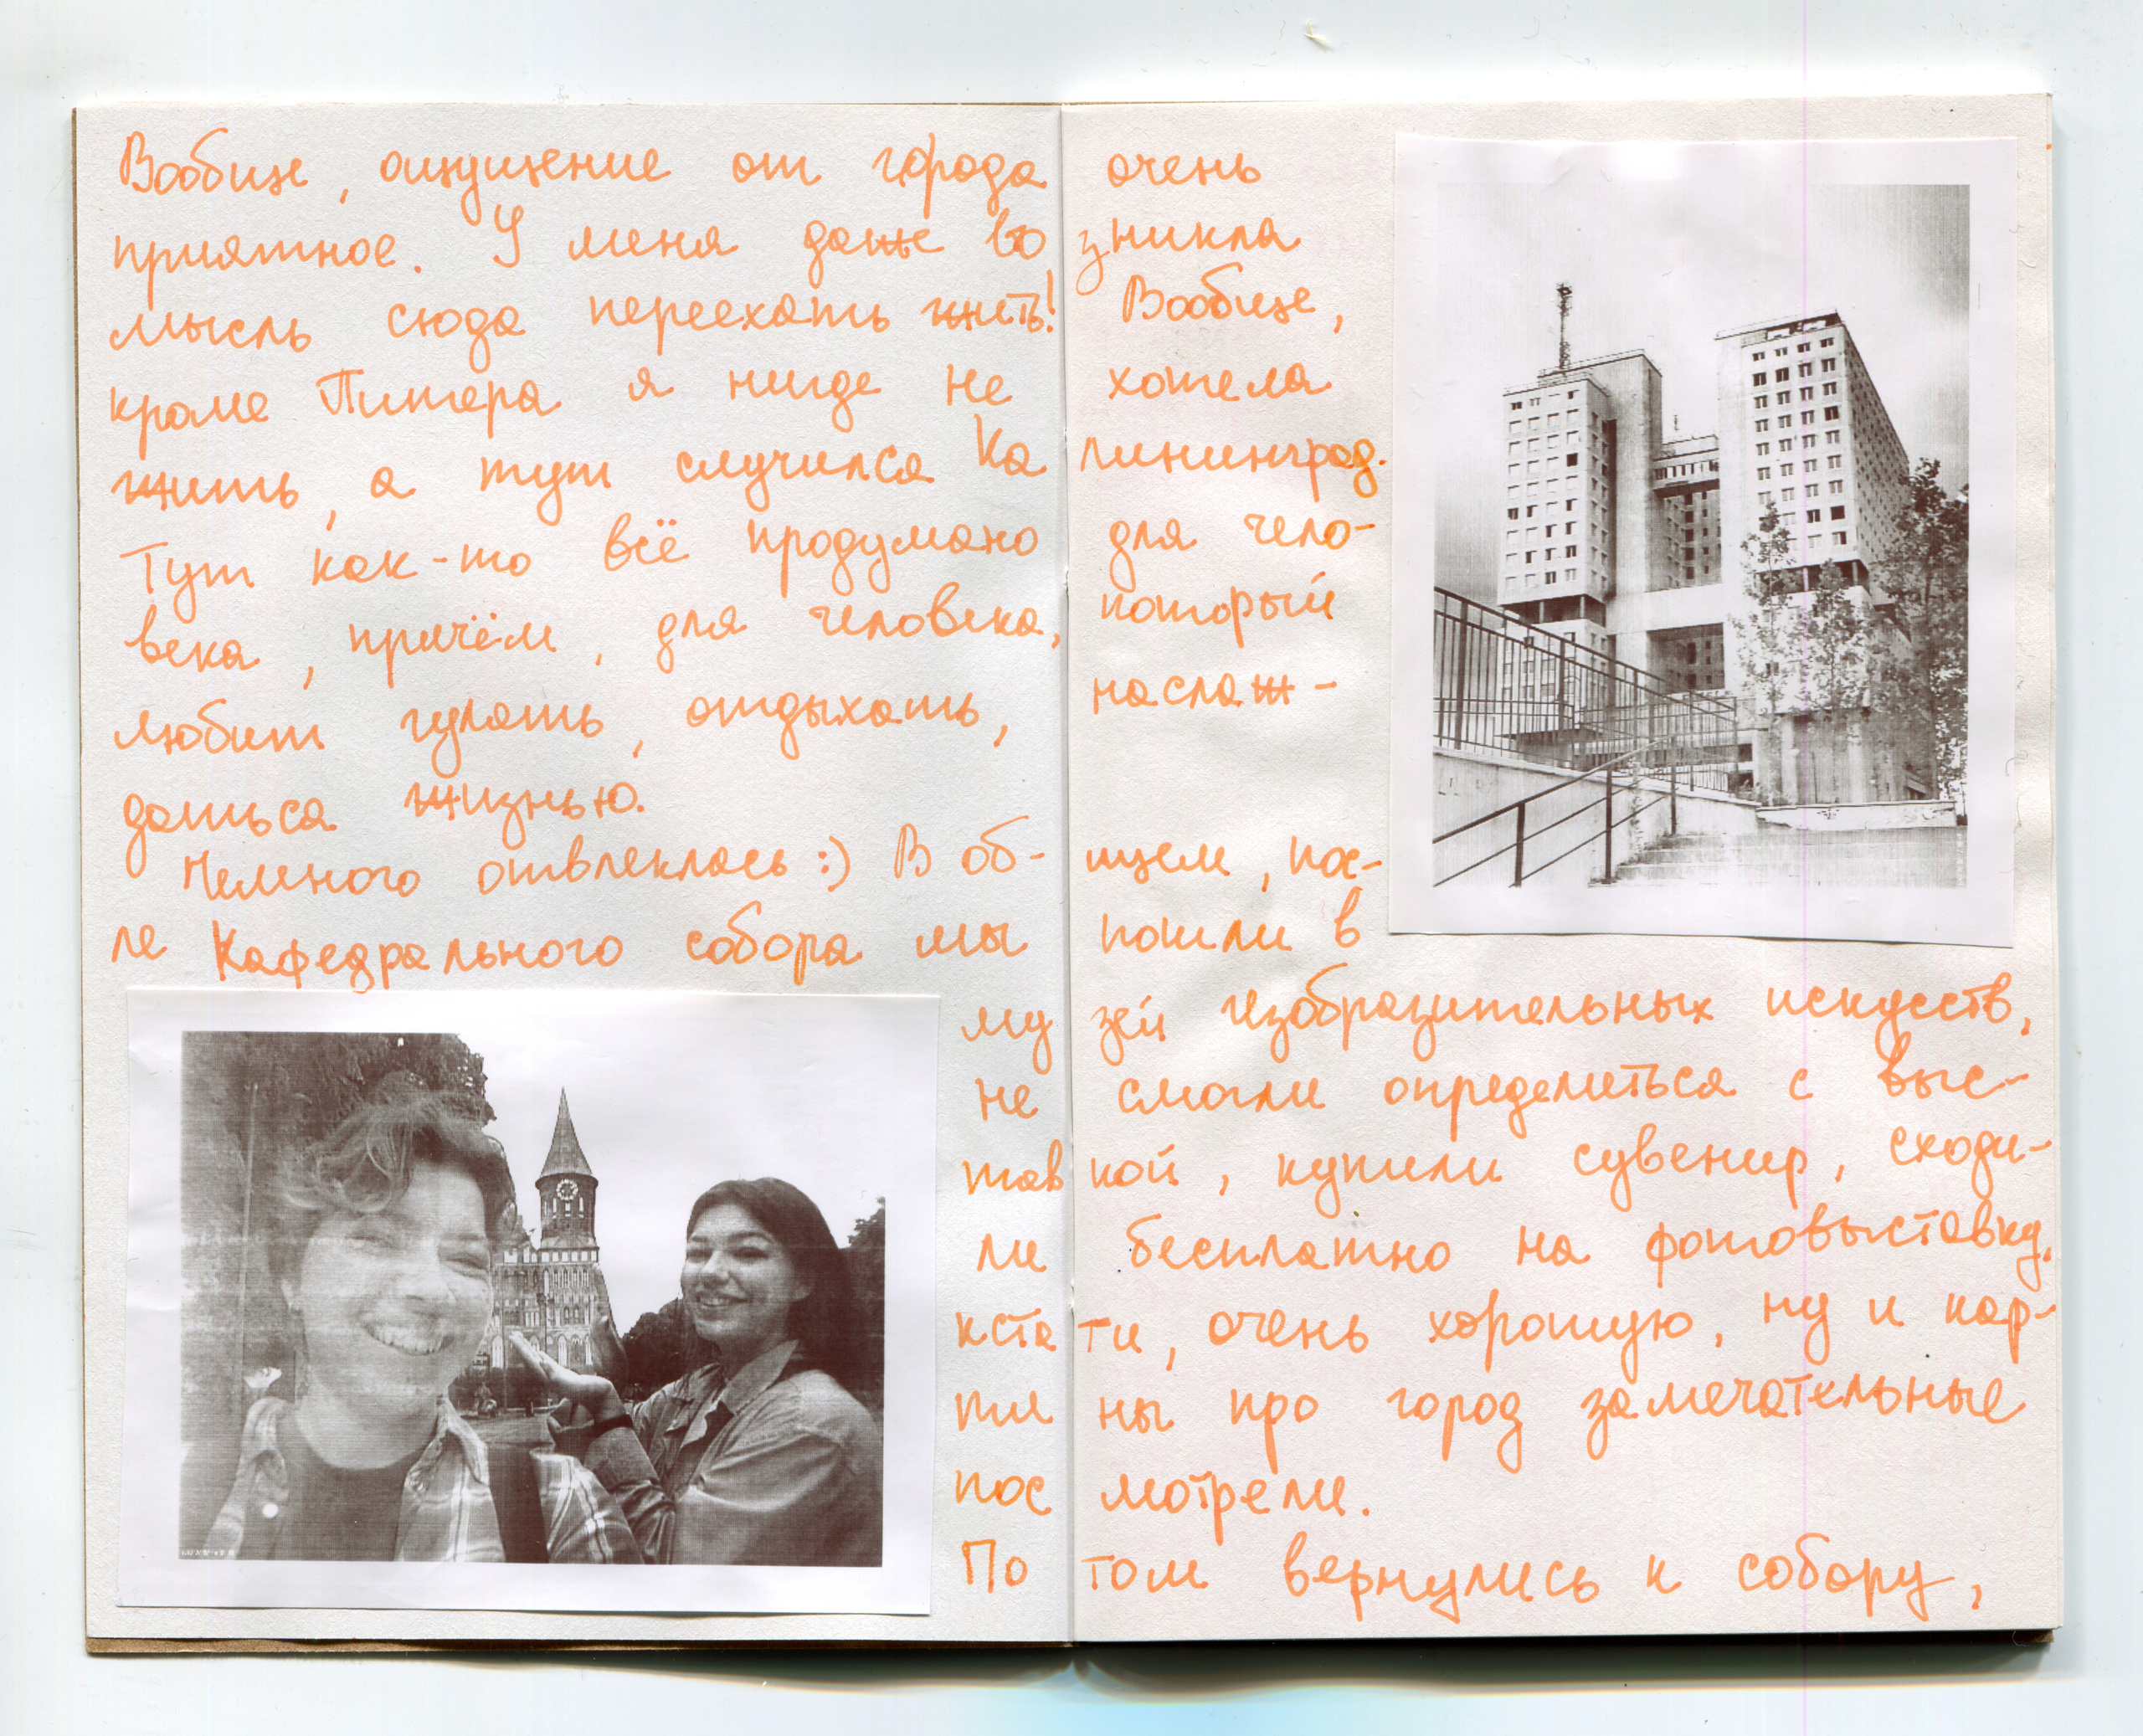 Вообще, ощущение от города очень
приятное. У меня даже возникла
мысль сюда переехать жить! Вообще,
кроме Питера я нигде не хотела
жить, а тут случился Калининград.
Тут как-то всё продумано для чело-
века, причём, для человека, который
любит гулять, отдыхать, наслаж-
даться жизнью.
Немного отвлеклась :) В общем, пос-
ле Кафедрального собора мы пошли в
музей изобразительных искусств,
не смогли определиться с выс-
тавкой, купили сувенир, сходи-
ли бесплатно на фотовыставку,
кстати, очень хорошую, ну и кар-
тины про город замечательные
посмотрели.
Потом вернулись к собору,